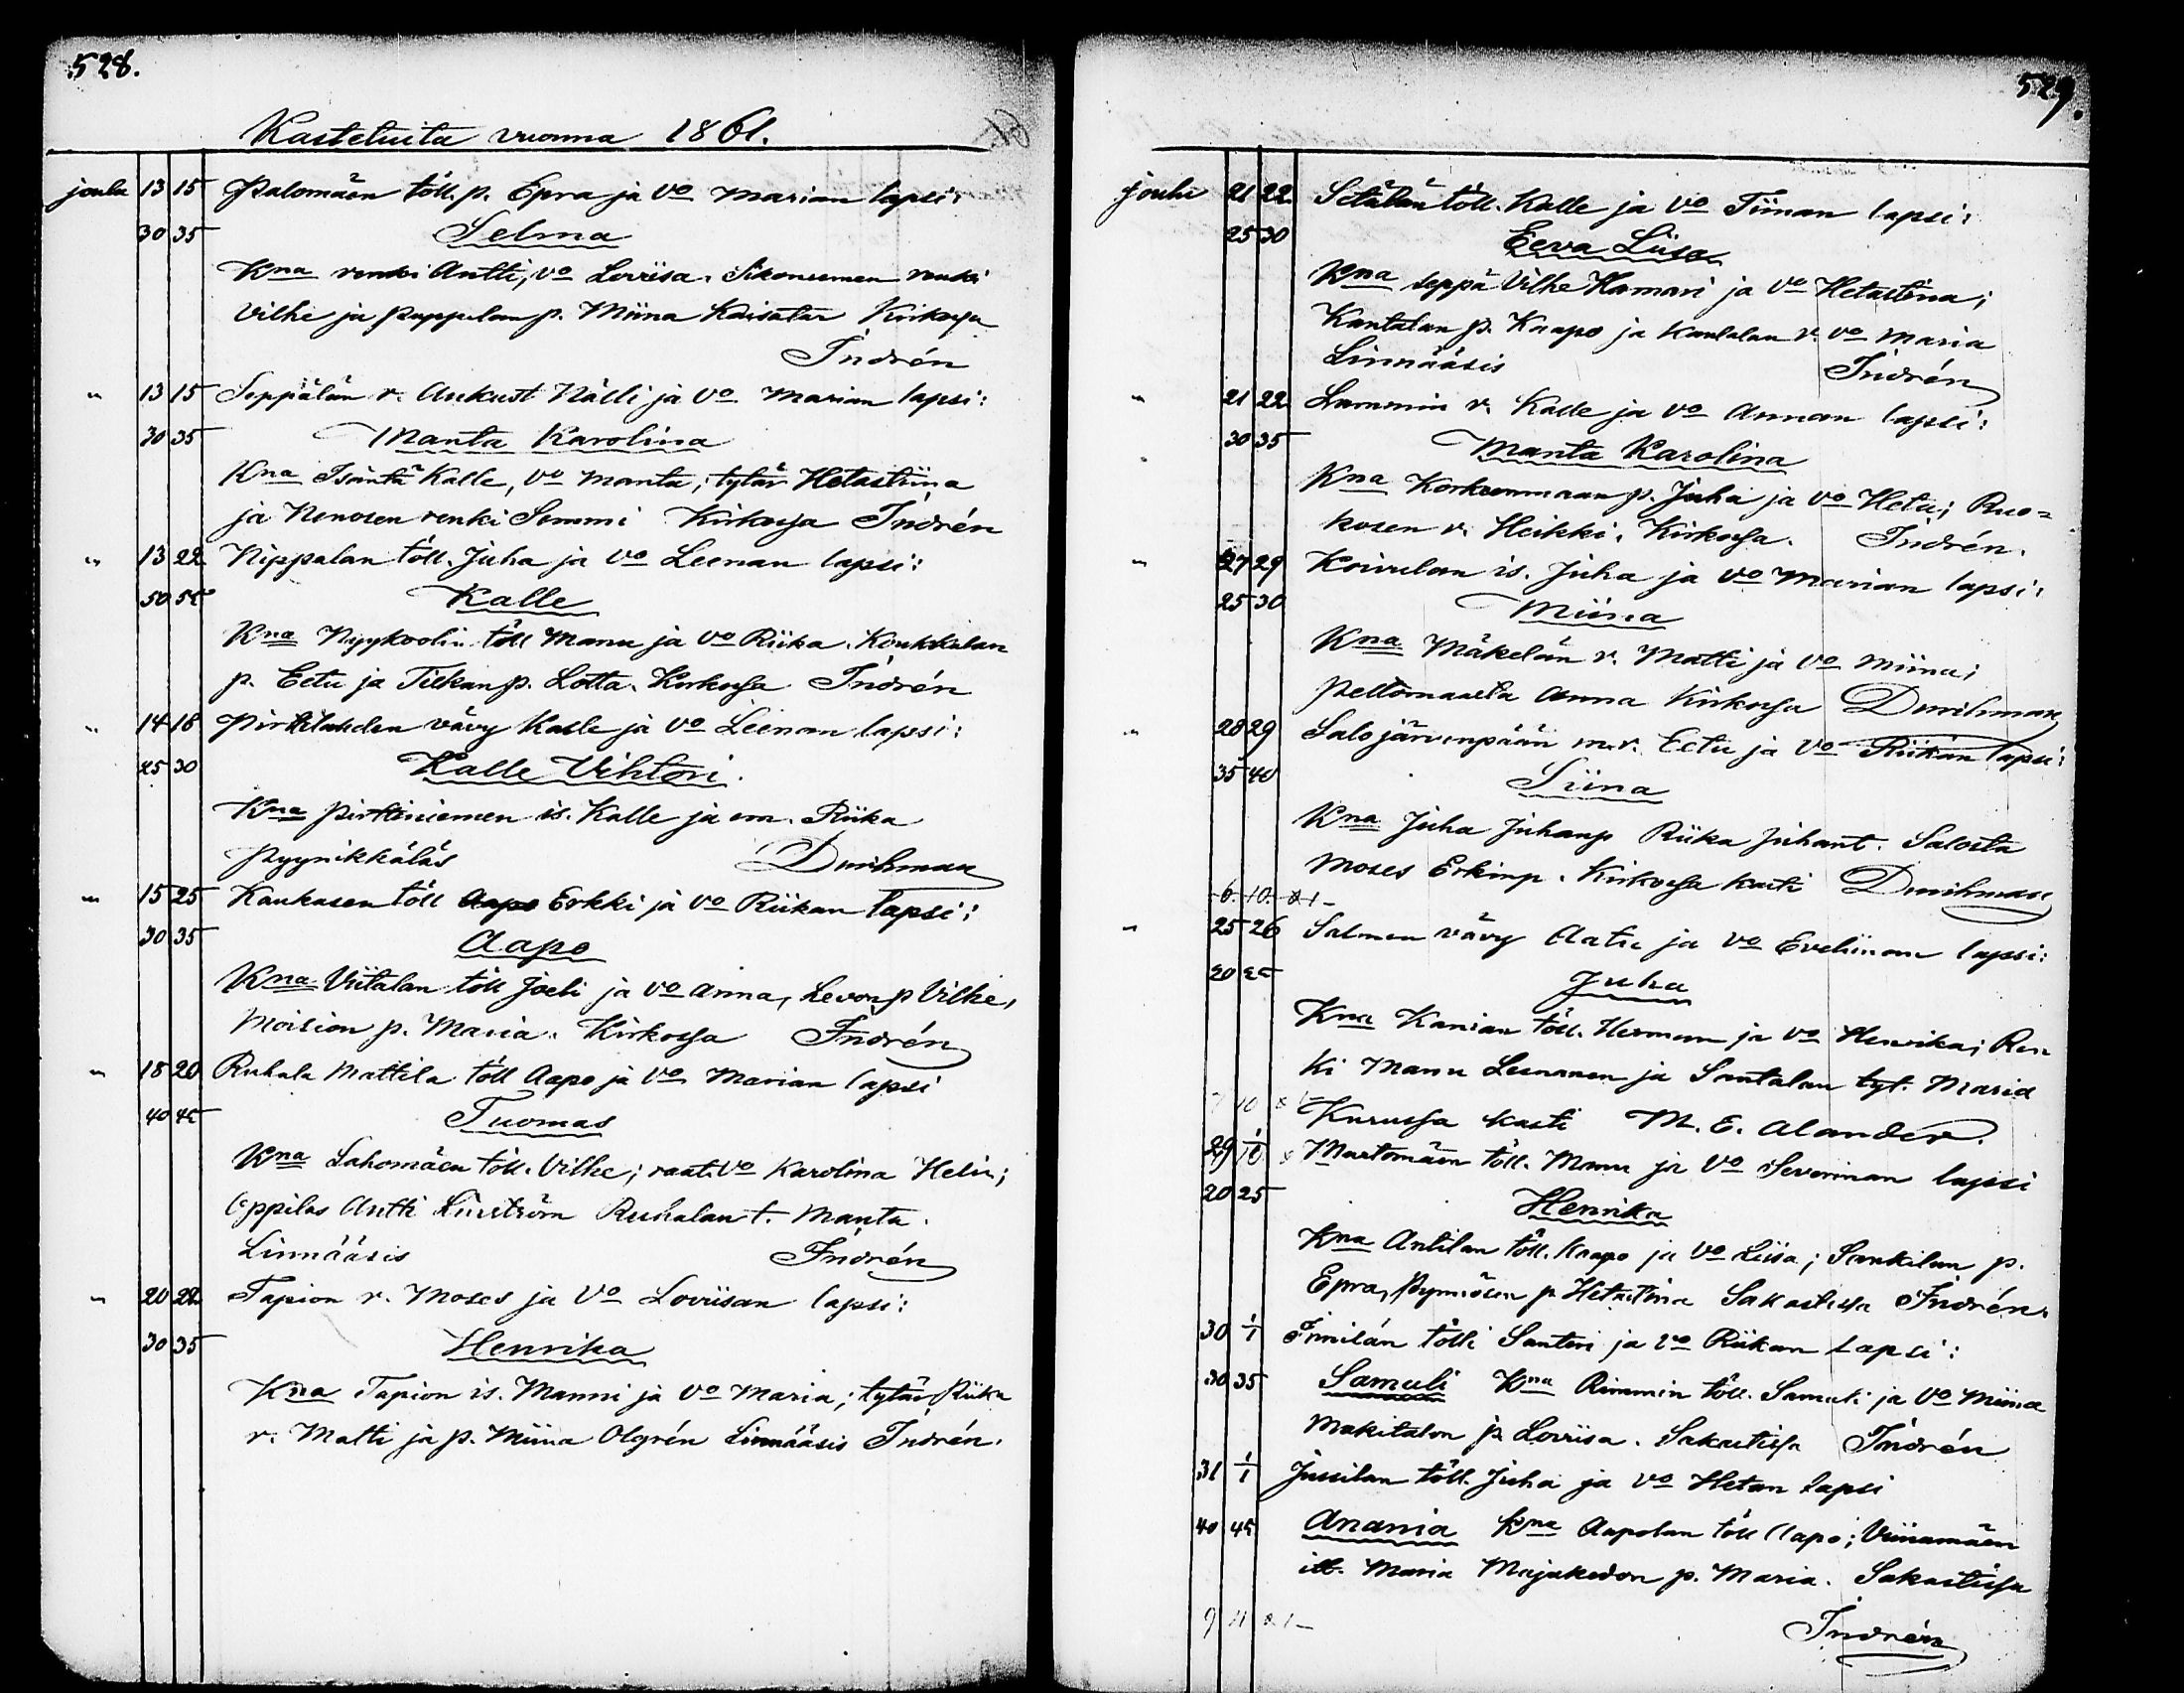 528.
Kastetuita vuonna 1861.
joulu 13 15 Palomäen töll. p. Epra ja vo Marian lapsi:
30 35 Selma
Kna renki Antti, vo Lovisa. renki
Vilhe ja Puppulan p. Miina Kaisatar Kirkossa
Indrén
" 13 15 Seppälän r. Aukust Nälli ja vo Marian lapsi:
30 35 Manta Karolina
Kna Isäntä Kalle, vo Manta, tytär Hetastiina
ja Nenosen renki Sommi Kirkossa Indrén
" 13 22 Nippalan töll. Juha ja vo Leenan lapsi:
50 55 Kalle
Kna Nyykoolin töll Manu ja vo Riika. Koukkulan
p. Eetu ja Tiekan p. Lotta. Kirkossa Indrén
" 14 18 Pirttilahden vävy Kalle ja vo Leenan lapsi:
25 30 Kalle Vihtori.
Kna Pirttiniemen is. Kalle ja em. Riika
Pyynikkäläs Durihman
" 15 25 Kaukasen töll Aapo Erkki ja vo Riikan lapsi:
30 35 Aapo
Kna Viitalan töll Joeli ja vo Anna, Levon p Vilhe,
Moision p. Maria. Kirkossa Indrén
" 18 20 Ruhala Mattila töll Aapo ja vo Marian lapsi
40 45 Tuomas
Kna Lahomäen töll. Vilhe; raat. vo Karolina Helin;
Oppilas Antti Ruhalan t. Manta.
Linnääsis Indrén
" 20 22 Tapion r. Moses ja vo Loviisan lapsi:
30 35 Henrika
Kna Tapion is. Manni ja vo Maria; tytär Riika
r. Matti ja p. Miina Olgrén Linnääsis Indrén.
529.
joulu 21 22 Setälän töll. Kalle ja vo Tiinan lapsi:
25 30 Eeva Liisa
Kna seppä Vilhe Hamari ja vo Hetastina;
Kantalan p. Kaapo ja Kantalan r. vo Maria
Linnääsis Indrén
" 21 22 Lammin r. Kalle ja vo Annan lapsi:
30 35 Manta Karolina
Kna Korkeenmaan p. Juha ja vo Heta; Ruo=
kosen r. Heikki. Kirkossa. Indrén.
" 27 29 Koivulan is. Juha ja vo Marian lapsi:
25 30 Miina
Kna Mäkelän r. Matti ja vo Miina;
Peltomaasta Anna Kirkossa Durihman
" 28 29 Salojärvenpään m. r. Eetu ja vo Riikan lapsi:
35 40 Siina
Kna Juha Juhanp Riika Juhant. Salosta
Moses Erkinp. Kirkossa kasti Durihman
6. 10. & 1 -
" 25 26 Salmen vävy Aatu ja vo Eveliinan lapsi:
20 25 Juha
Kna Kanian töll. Herman ja vo Henrika; Ren
ki Manu Leenanen ja Santalan tyt. Maria
7 10 & 1 Kurussa kasti M. E. Alander.
29 1/16 Martomäen töll. Manu ja vo Severinan lapsi
20 25 Henrika
Kna Antilan töll. Kaapo ja vo Liisa; Sankilan p.
Epra, p. Hetastina Sakastissa Indrén.
30 1/1 Immilän tölli Santeri ja vo Riikan lapsi:
30 35 Samuli Kna Rimmin töll. Samuli ja vo Miina
Mäkitalon p. Loviisa. Sakastissa Indrén
31 1/1 Jussilan töll. Juha ja vo Hetan lapsi
40 45 Anania Kna Aapolan töll Aapo; Viinamäen
itt. Maria Majakedon p. Maria. Sakastissa
9 11 & 1 - Indrén